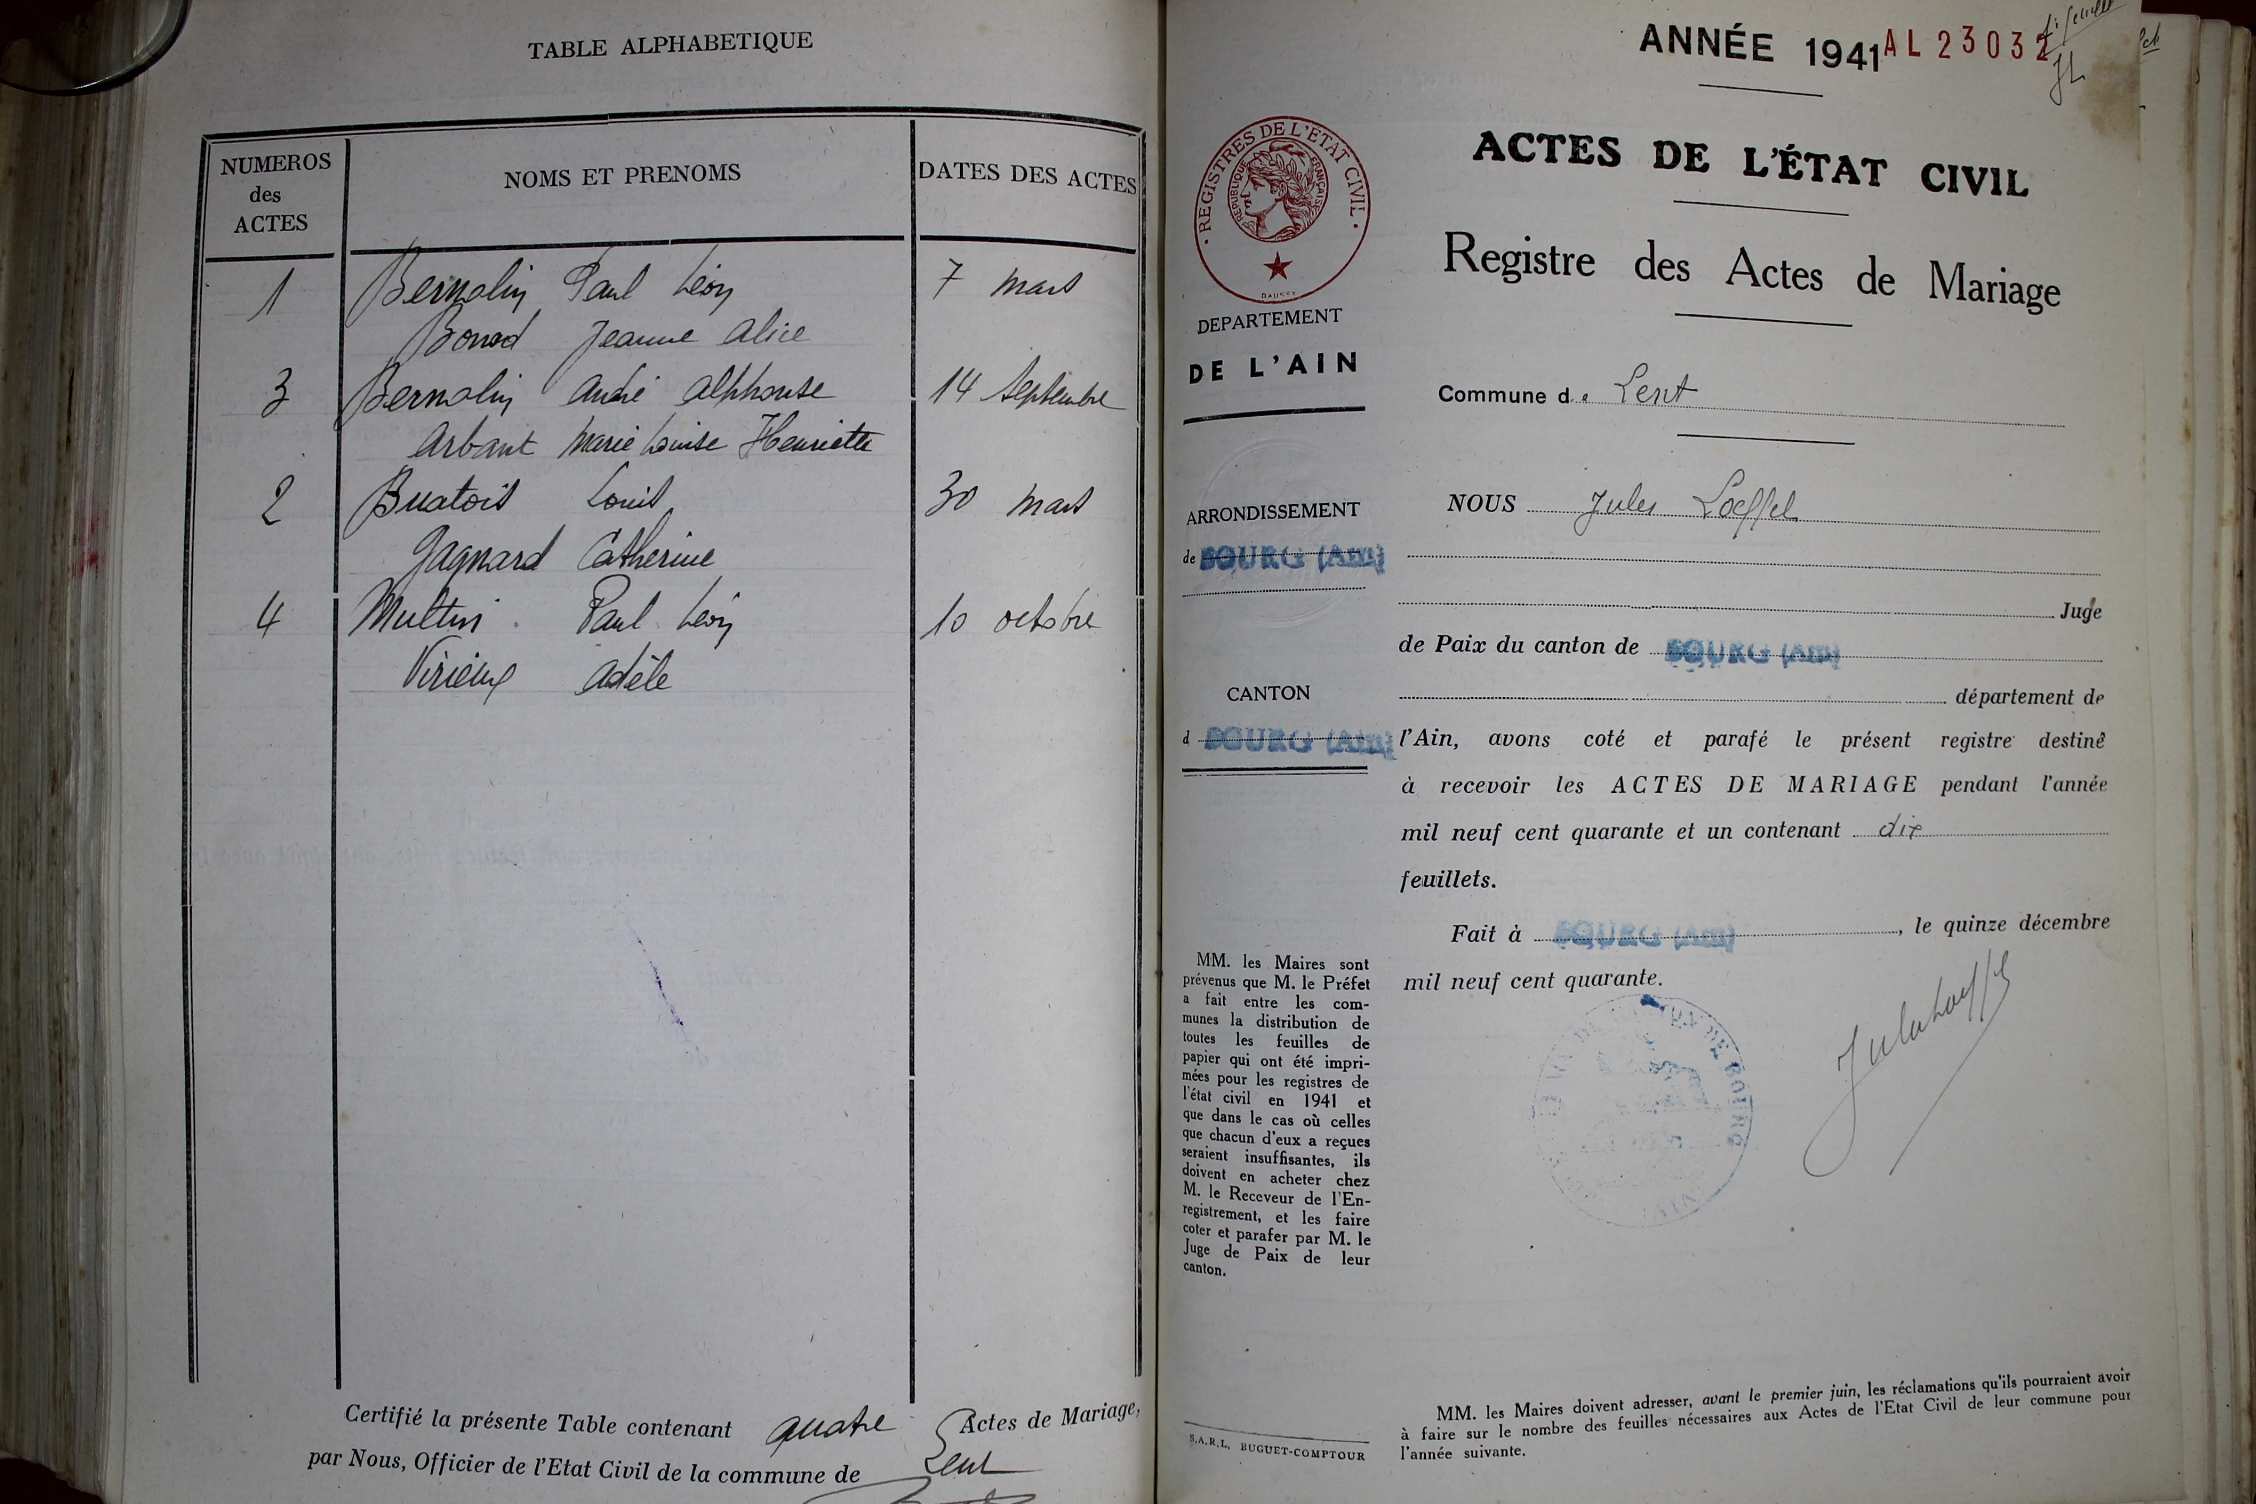 TABLE ALPHABETIQUE
NUMEROS des ACTES
NOMS ET PRENOMS
DATES DES ACTES
1 Bernolin Paul Léon 7 mars
Bonod Jeanne Alice
3 Bernolin André Alphonse 14 Septembre
Arbant Marie Louise Henriette
2 Buatois Louis 30 mars
Gagnard Catherine
4 Multin Paul Léon 10 octobre
Virieux Adèle
Certifié la présente Table contenant quatre Actes de Mariage,
par Nous, Officier de l'Etat Civil de la commune de Lent
ANNÉE 1941 AL 23032
JL
ACTES DE L'ÉTAT CIVIL
Registre des Actes de Mariage
· REGISTRES DE L'ETAT CIVIL ·
REPUBLIQUE FRANÇAISE
DEPARTEMENT
DE L'AIN
Commune de Lent
ARRONDISSEMENT
de BOURG (Ain)
CANTON
d BOURG (Ain)
NOUS Jules Loeffel
Juge
de Paix du canton de BOURG (Ain)
département de
l'Ain, avons coté et parafé le présent registre destiné
à recevoir les ACTES DE MARIAGE pendant l'année
mil neuf cent quarante et un contenant dix
feuillets.
Fait à BOURG (Ain), le quinze décembre
mil neuf cent quarante.
Jules Loeffel
MM. les Maires sont
prévenus que M. le Préfet
a fait entre les com-
munes la distribution de
toutes les feuilles de
papier qui ont été impri-
mées pour les registres de
l'état civil en 1941 et
que dans le cas où celles
que chacun d'eux a reçues
seraient insuffisantes, ils
doivent en acheter chez
M. le Receveur de l'En-
registrement, et les faire
coter et parafer par M. le
Juge de Paix de leur
canton.
S.A.R.L. BUGUET-COMPTOUR
MM. les Maires doivent adresser, avant le premier juin, les réclamations qu'ils pourraient avoir
à faire sur le nombre des feuilles nécessaires aux Actes de l'Etat Civil de leur commune pour
l'année suivante.